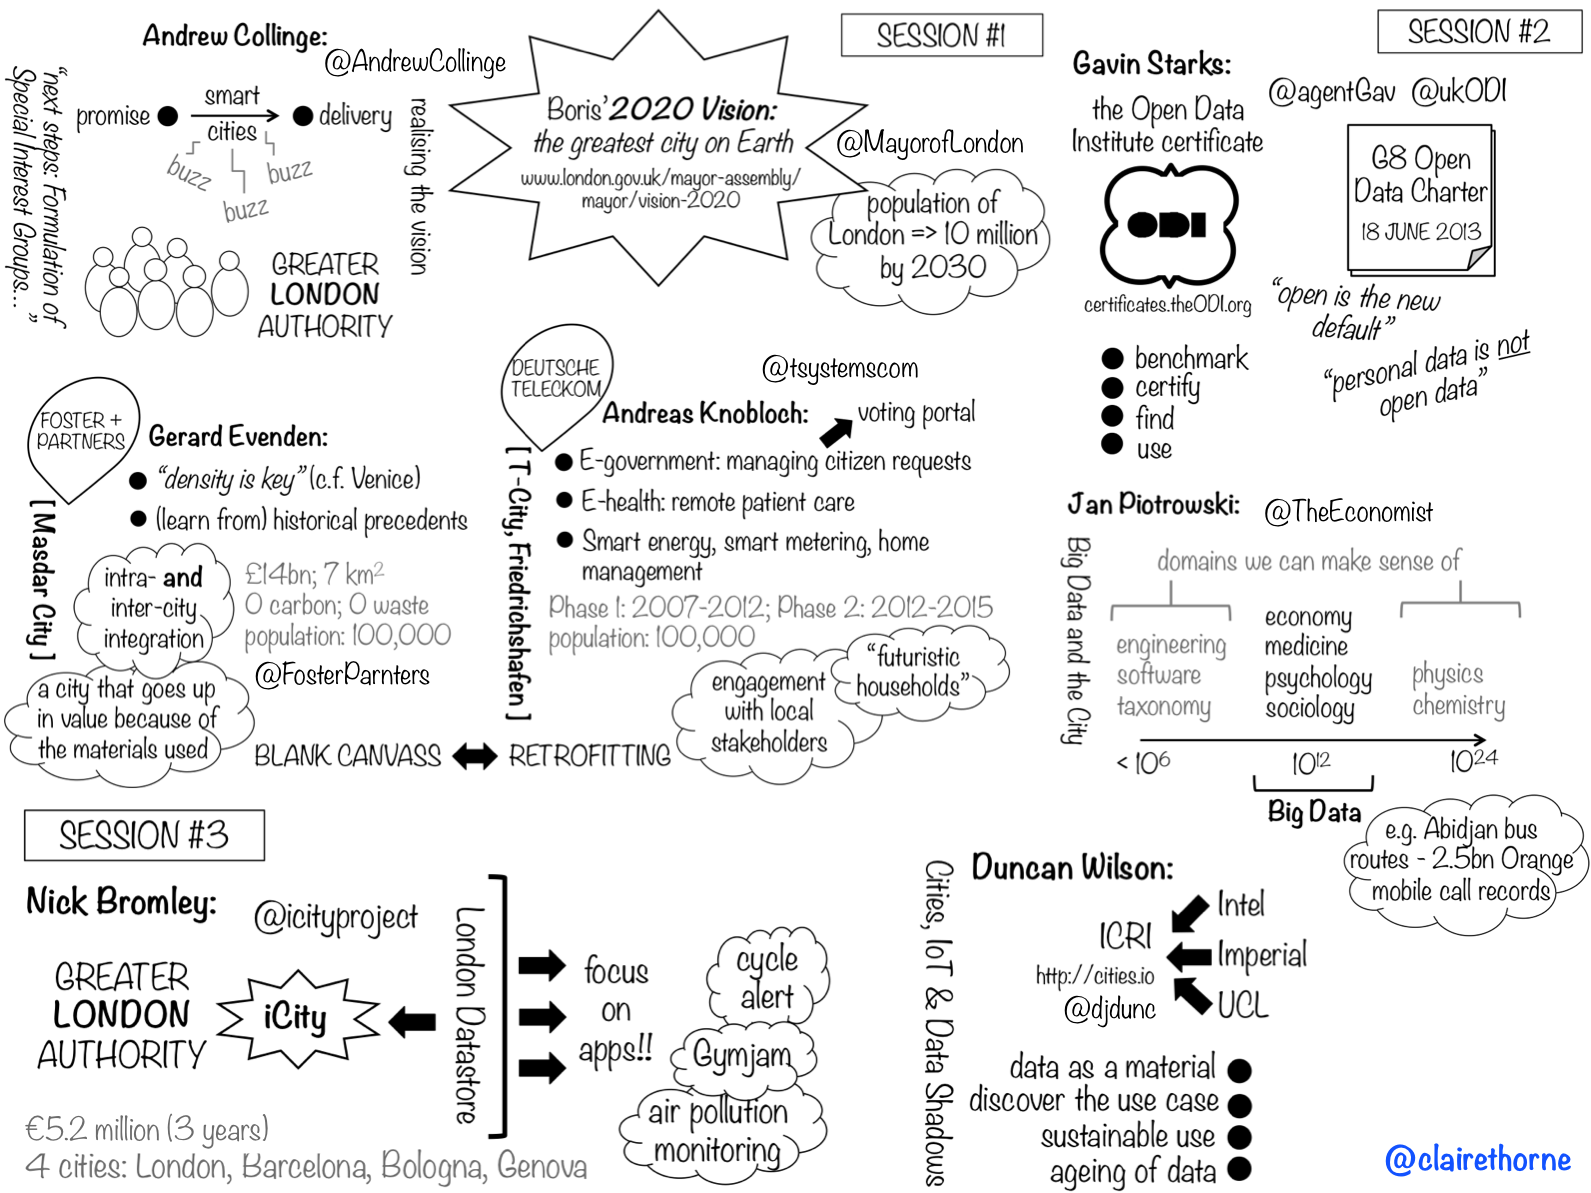 SESSION #1
Andrew Collinge:
@AndrewCollinge
"next steps: Formulation of
Special Interest Groups..."
promise
smart
cities
delivery
buzz
buzz
buzz
realising the vision
GREATER
LONDON
AUTHORITY
Boris' 2020 Vision:
the greatest city on Earth
www.london.gov.uk/mayor-assembly/
mayor/vision-2020
@MayorofLondon
population of
London => 10 million
by 2030
FOSTER +
PARTNERS
Gerard Evenden:
[Masdar City]
"density is key" (c.f. Venice)
(learn from) historical precedents
intra- and
inter-city
integration
£14bn; 7 km2
0 carbon; 0 waste
population: 100,000
@FosterParnters
a city that goes up
in value because of
the materials used
BLANK CANVASS
RETROFITTING
DEUTSCHE
TELECKOM
@tsystemscom
Andreas Knobloch:
voting portal
[T-City, Friedrichshafen]
E-government: managing citizen requests
E-health: remote patient care
Smart energy, smart metering, home
management
Phase 1: 2007-2012; Phase 2: 2012-2015
population: 100,000
"futuristic
households"
engagement
with local
stakeholders
SESSION #2
Gavin Starks:
@agentGav @ukODI
the Open Data
Institute certificate
ODI
certificates.theODI.org
benchmark
certify
find
use
G8 Open
Data Charter
18 JUNE 2013
"open is the new
default"
"personal data is not
open data"
Jan Piotrowski:
@TheEconomist
Big Data and the City
domains we can make sense of
engineering
software
taxonomy
economy
medicine
psychology
sociology
physics
chemistry
< 106
1012
1024
Big Data
e.g. Abidjan bus
routes - 2.5bn Orange
mobile call records
SESSION #3
Nick Bromley:
@icityproject
GREATER
LONDON
AUTHORITY
iCity
London Datastore
focus
on
apps!!
cycle
alert
Gymjam
air pollution
monitoring
€5.2 million (3 years)
4 cities: London, Barcelona, Bologna, Genova
Duncan Wilson:
Cities, IoT & Data Shadows
ICRI
http://cities.io
@djdunc
Intel
Imperial
UCL
data as a material
discover the use case
sustainable use
ageing of data
@clairethorne